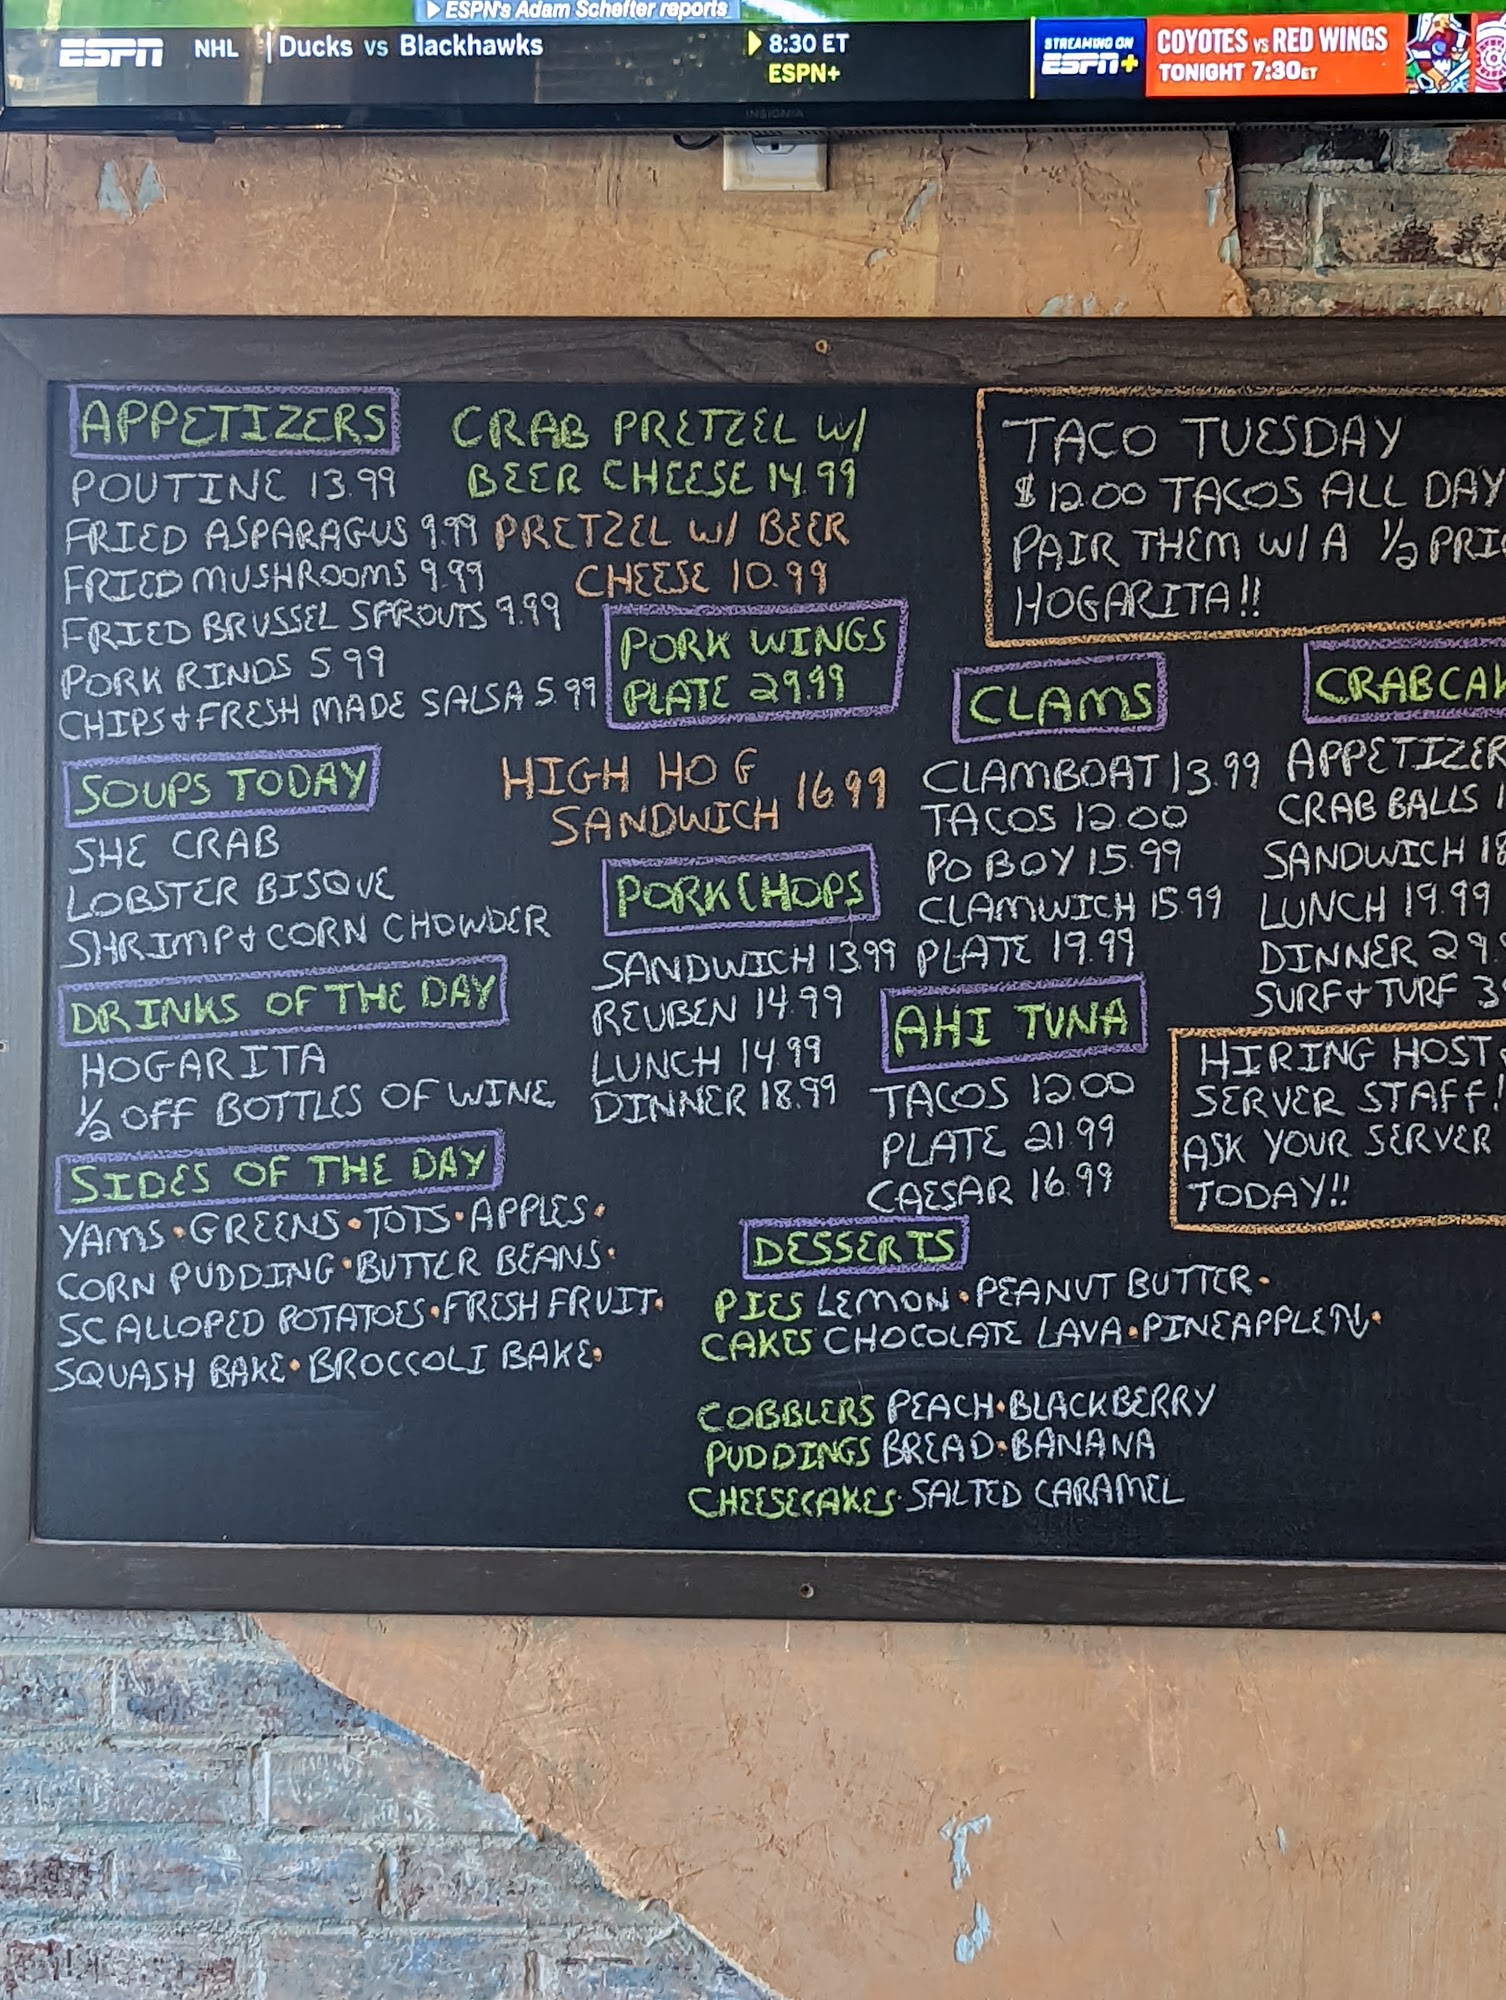 ESPN's Adam Schefter reports
ESPN NHL Ducks vs Blackhawks 8:30 ET
ESPN+
STREAMING ON
ESPN+
COYOTES vs RED WINGS
TONIGHT 7:30ET
INSIGNIA
APPETIZERS
POUTINE 13.99
FRIED ASPARAGUS 9.99
FRIED MUSHROOMS 9.99
FRIED BRUSSEL SPROUTS 9.99
PORK RINDS 5.99
CHIPS + FRESH MADE SALSA 5.99
SOUPS TODAY
SHE CRAB
LOBSTER BISQUE
SHRIMP + CORN CHOWDER
DRINKS OF THE DAY
HOGARITA
1/2 OFF BOTTLES OF WINE
SIDES OF THE DAY
YAMS • GREENS • TOTS • APPLES •
CORN PUDDING • BUTTER BEANS •
SCALLOPED POTATOES • FRESH FRUIT •
SQUASH BAKE • BROCCOLI BAKE •
CRAB PRETZEL W/
BEER CHEESE 14.99
PRETZEL W/ BEER
CHEESE 10.99
PORK WINGS
PLATE 29.99
HIGH HOG
SANDWICH 16.99
PORKCHOPS
SANDWICH 13.99
REUBEN 14.99
LUNCH 14.99
DINNER 18.99
TACO TUESDAY
$12.00 TACOS ALL DAY
PAIR THEM W/ A 1/2
HOGARITA!!
CLAMS
CLAMBOAT 13.99
TACOS 12.00
PO BOY 15.99
CLAMWICH 15.99
PLATE 19.99
AHI TUNA
TACOS 12.00
PLATE 21.99
CAESAR 16.99
APPETIZER
CRAB BALLS
SANDWICH
LUNCH 19.99
DINNER
SURF + TURF
HIRING HOST
SERVER STAFF!
ASK YOUR SERVER
TODAY!!
DESSERTS
PIES LEMON • PEANUT BUTTER •
CAKES CHOCOLATE LAVA •
COBBLERS PEACH • BLACKBERRY
PUDDINGS BREAD • BANANA
CHEESECAKES • SALTED CARAMEL